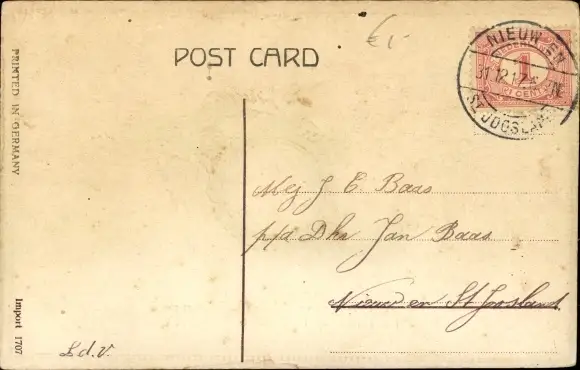 €1-
POST CARD
NIEUW-EN
NEDERLAND
1
CENT
31.12.12
ST JOOSLAND
PRINTED IN GERMANY
Mej J E Baas
p/a Dhr Jan Baas
Nieuw en St Joosland.
Import 1707
L.d.V.